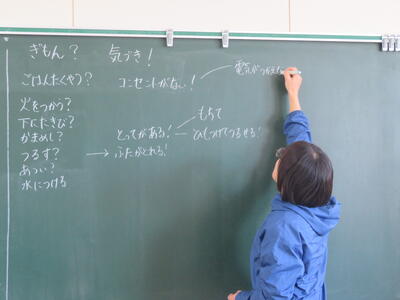 ぎもん？ 気づき！
ごはんたくやつ？ コンセントがない！ 電気がつかえ
火をつかう？
下にたきび？ もちて
かまめし？ とってがある！ ひもつけてつるせる！
つるす？ → ふたがとれる！
あつい？
水につける